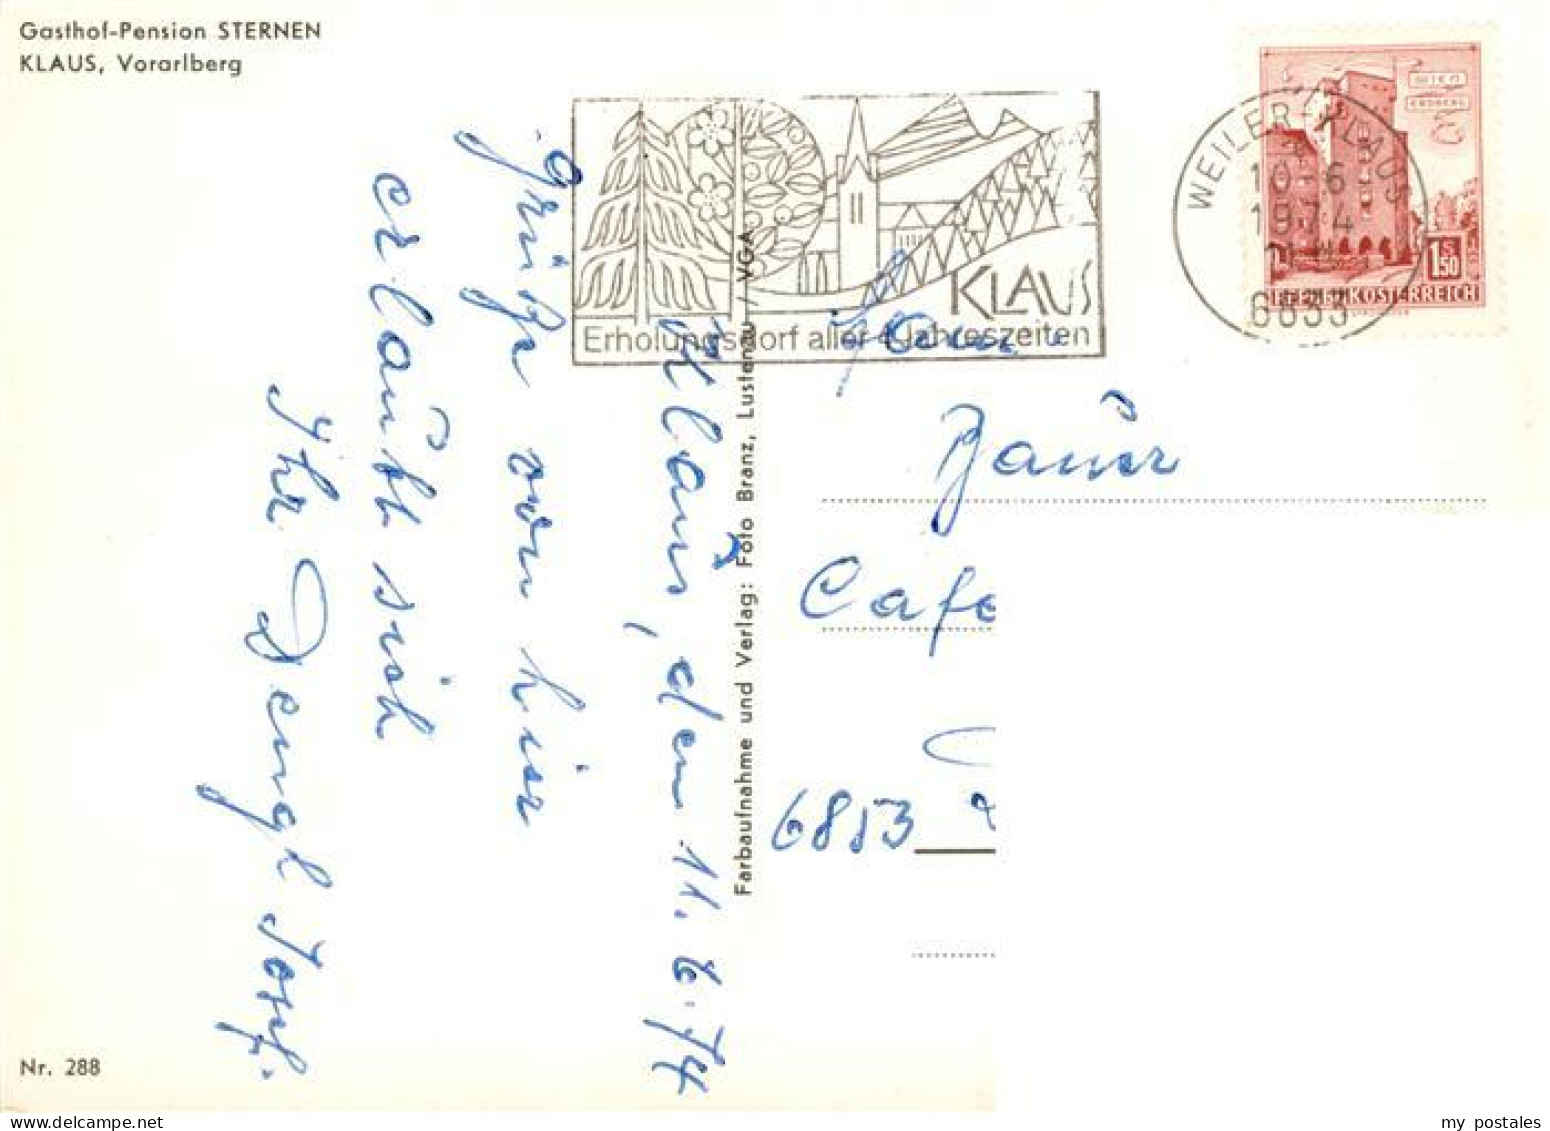 Gasthof-Pension STERNEN
KLAUS, Vorarlberg
KLAUS
Erholungsdorf aller 4 Jahreszeiten
WEILER-KLAUS
10-6
1974
6833
WIEN
ERDBERG
1.50
S
REPUBLIK ÖSTERREICH
Klaus, den 11.6.74
Grüße von hier
erlaubt sich
Ihr Dengl Josef.
Fam.
Bauer
Cafe
6853
Farbaufnahme und Verlag: Foto Branz, Lustenau / VGA
Nr. 288
my postales